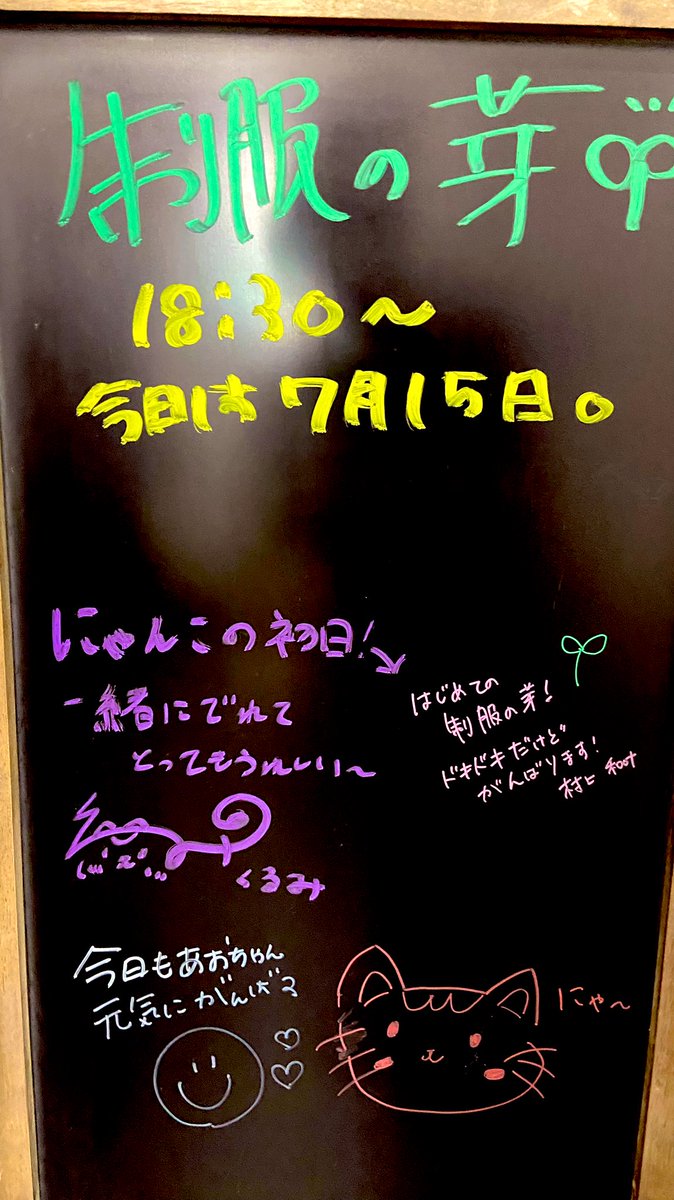 制服の芽
18:30〜
今日は7月15日。
にゃんこの初日!
一緒にでれて
とってもうれしい〜
くるみ
はじめての
制服の芽!
ドキドキだけど
がんばります!
村上 和叶
今日もあおちゃん
元気にがんばる
にゃ〜